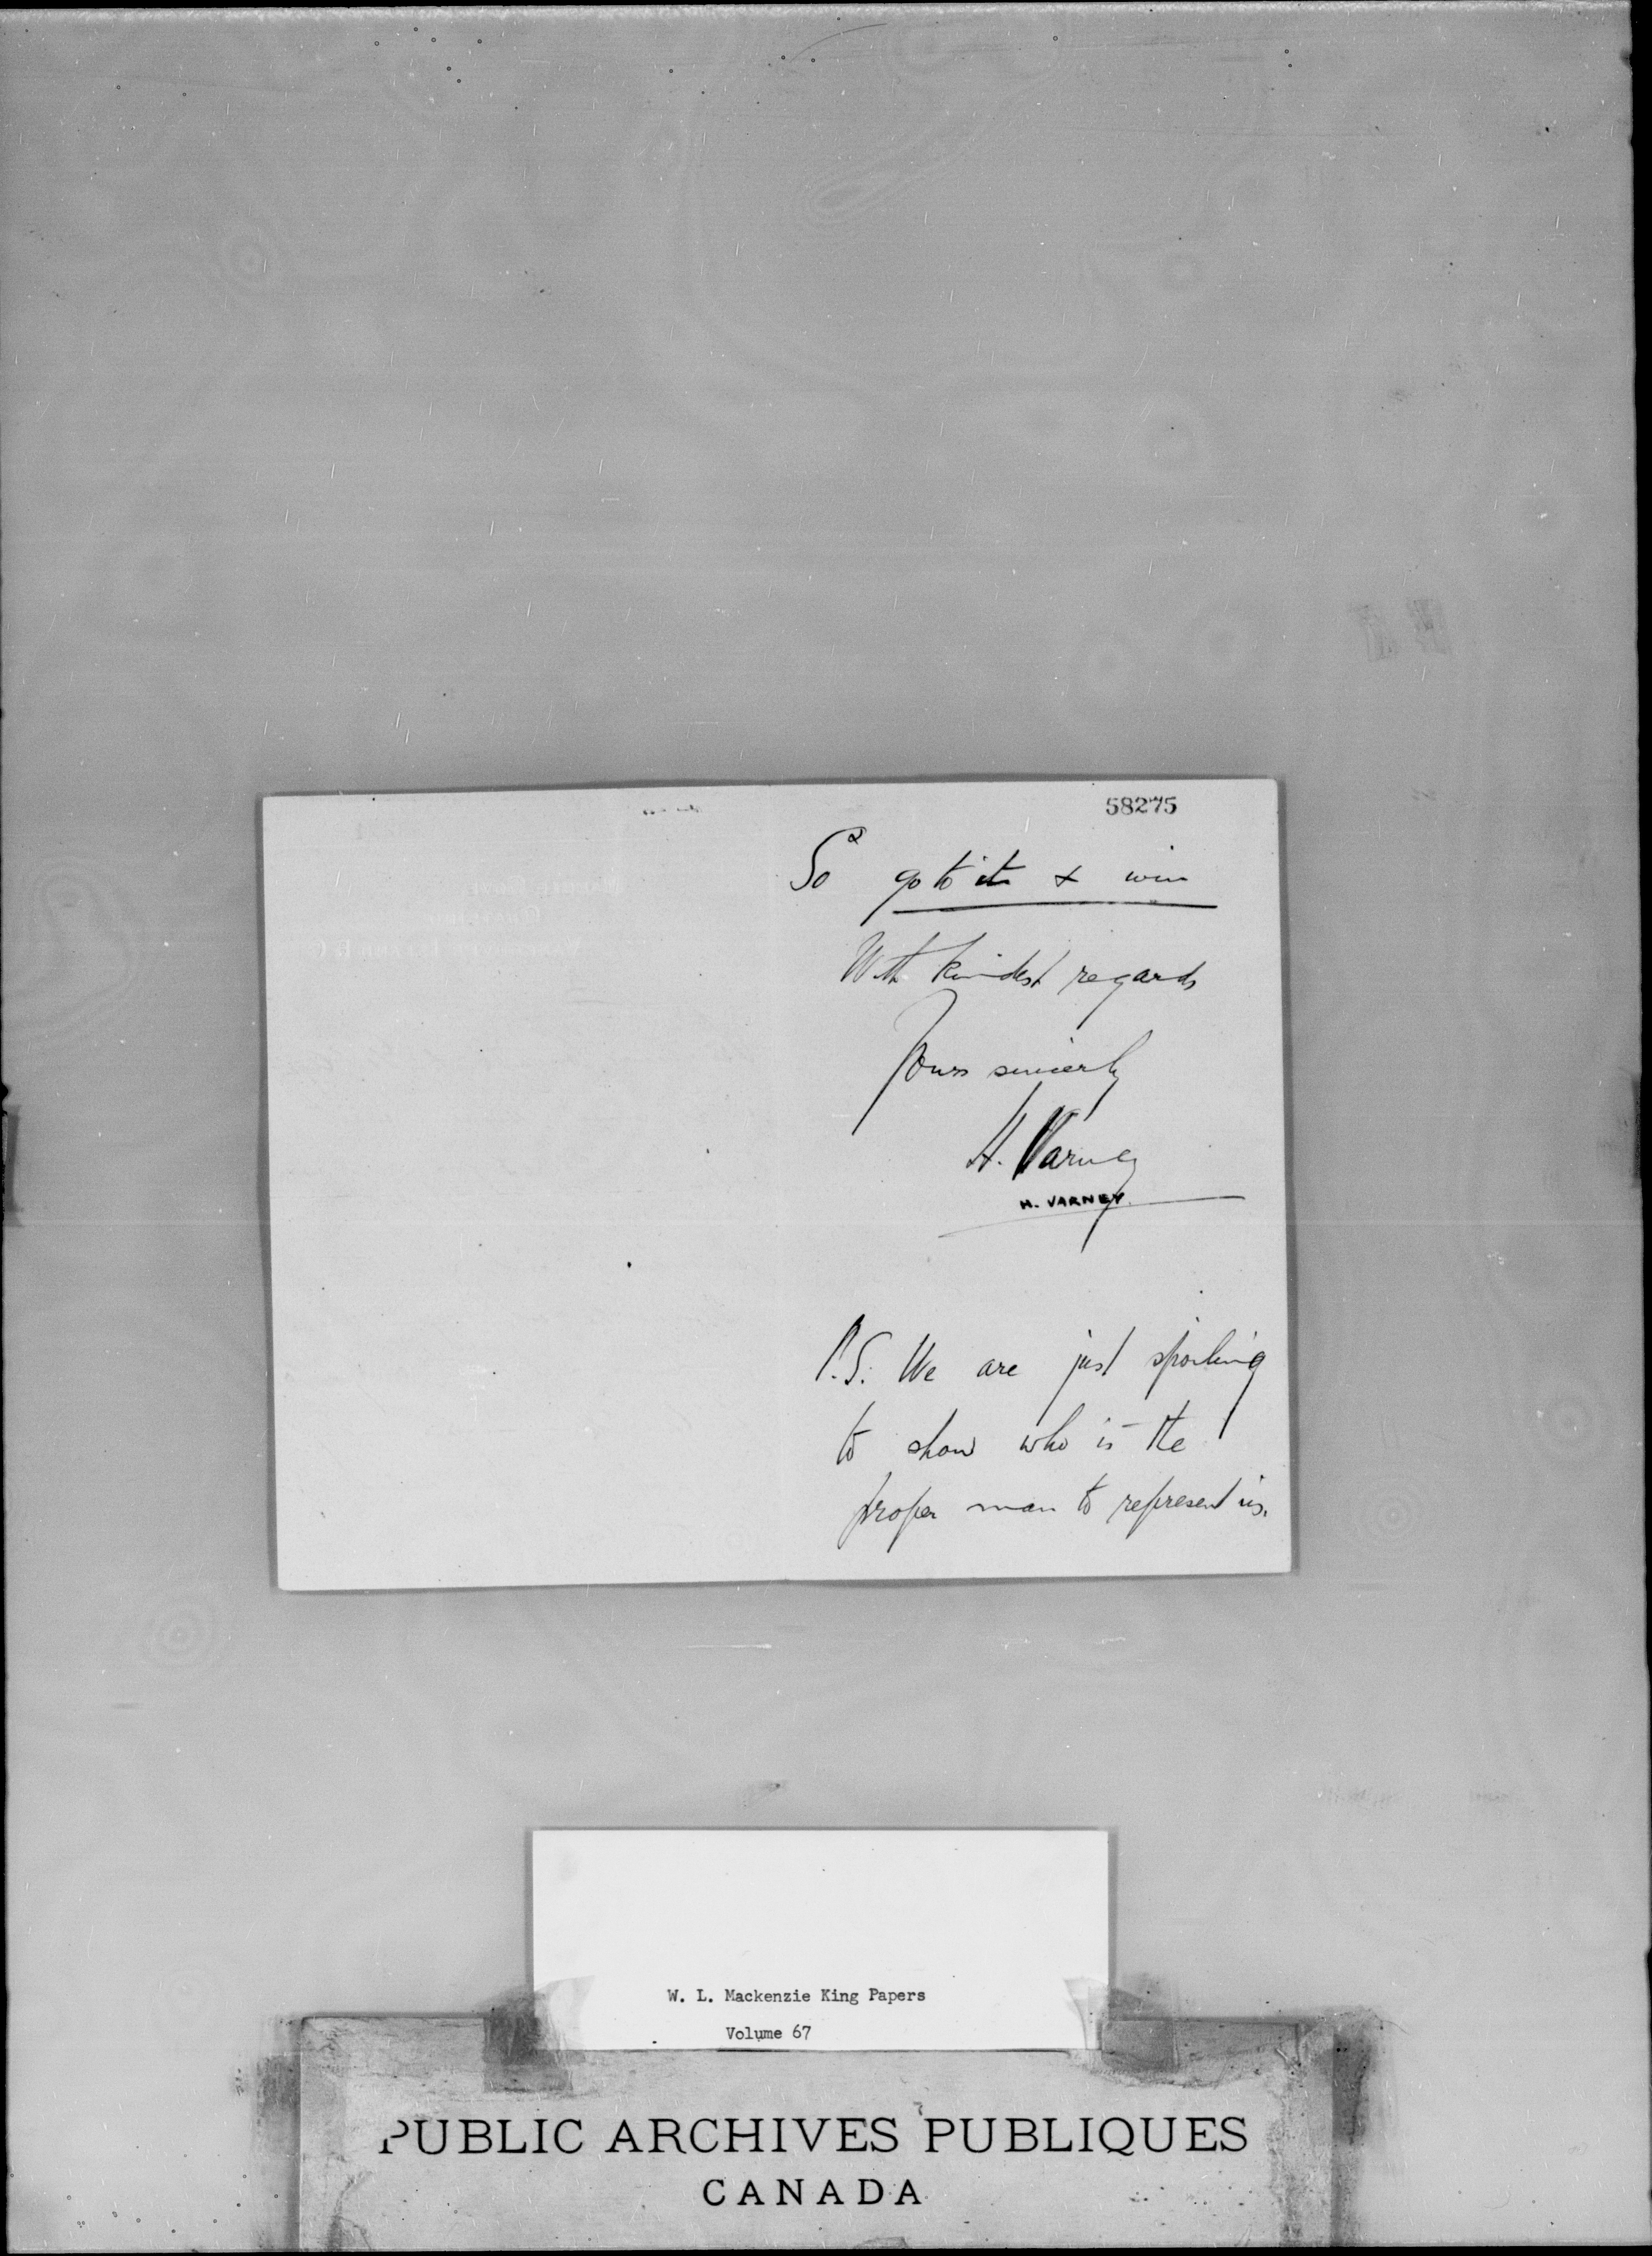 58275
So go to it & win
With kindest regards
Yours sincerly
H. Varney
H. VARNEY.
P.S. We are just spoiling
to show who is the
proper man to represent us.
W. L. Mackenzie King Papers
Volume 67
PUBLIC ARCHIVES PUBLIQUES
CANADA